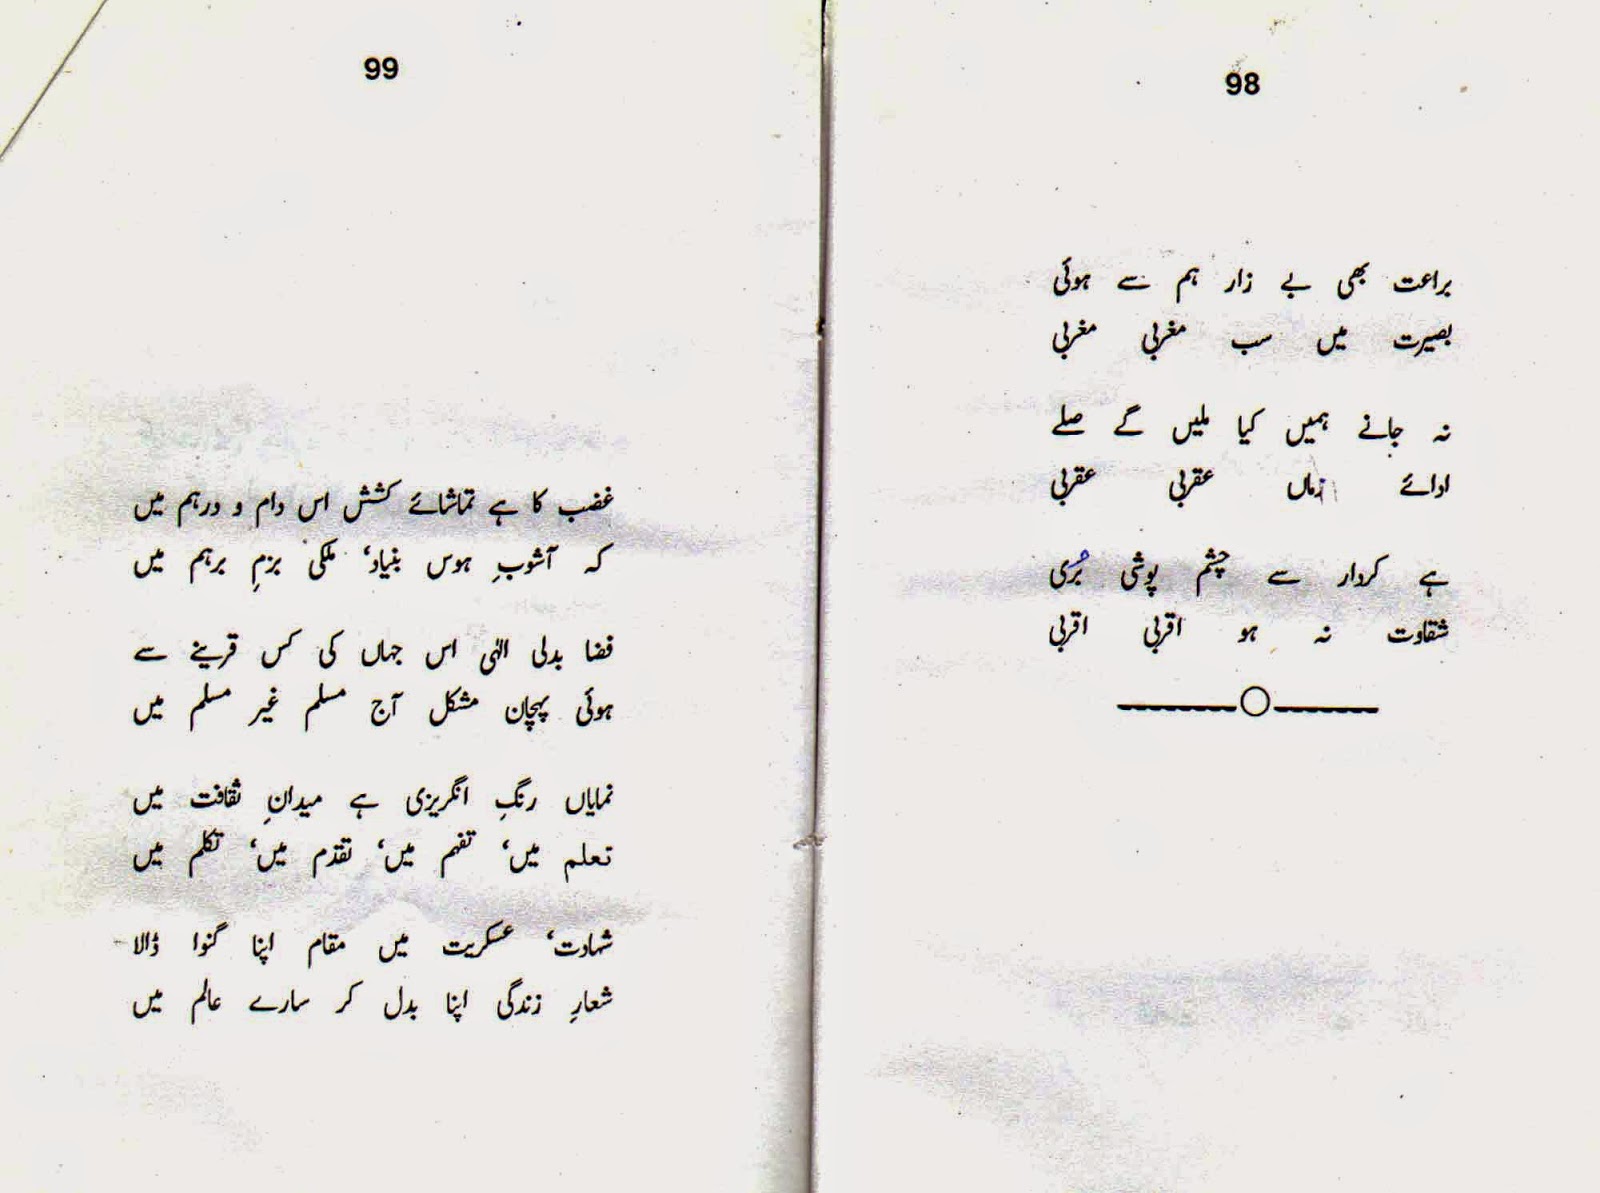 98
براعت بھی بے زار ہم سے ہوئی
بصیرت میں سب مغربی مغربی
نہ جانے ہمیں کیا ملیں گے صلے
ادائے زماں عقربی عقربی
ہے کردار سے چشم پوشی بُری
شقاوت نہ ہو اقربی اقربی
99
غضب کا ہے تماشائے کشش اس دام و درہم میں
کہ آشوبِ ہوس بنیاد، ملکی بزمِ برہم میں
فضا بدلی الٰہی اس جہاں کی کس قرینے سے
ہوئی پہچان مشکل آج مسلم غیر مسلم میں
نمایاں رنگِ انگریزی ہے میدانِ ثقافت میں
تعلم میں، تفہم میں، تقدم میں، تکلم میں
شہادت، عسکریت میں مقام اپنا گنوا ڈالا
شعارِ زندگی اپنا بدل کر سارے عالم میں